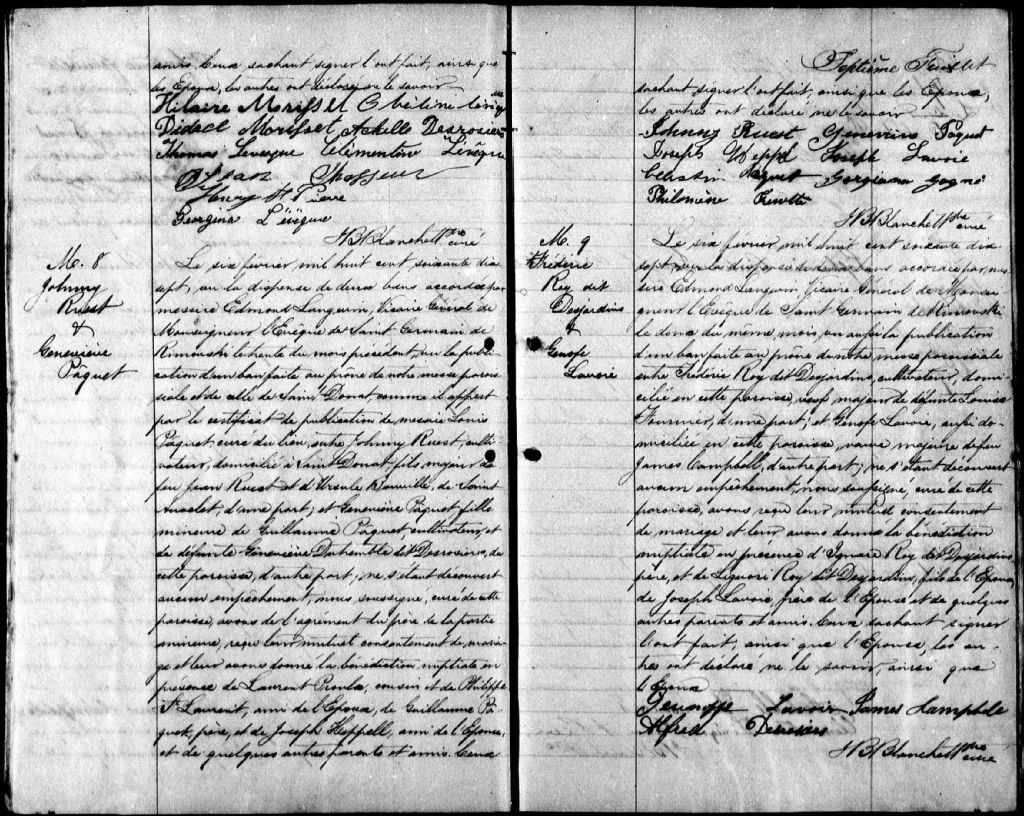 amis. Ceux sachant signer l'ont fait, ainsi que
les Epoux, les autres ont déclaré ne le savoir
Hilaire Morisset
Didace Morisset Achille Desrosiers
Thomas Levesque Clémentine Lévêque
Henry St Pierre
Georgina L'évêque
H B Blanchett ptre curé
M. 8
Johnny
Ruest
&
Geneviève
Pâquet
Le six février mil huit cent soixante dix
sept, vu la dispense de deux bans accordée par
messire Edmond Langevin, Vicaire Général de
Monseigneur l'Evêque de Saint Germain de
Rimouski le trente du mois précédent, vu la publi-
cation d'un ban faite au prône de notre messe parois-
siale et de celle de Saint Donat comme il appert
par le certificat de publication de messire Louis
Pâquet curé du lieu, entre Johnny Ruest, culti-
vateur, domicilié à Saint Donat, fils majeur de
feu Jean Ruest et d'Ursule Banville, de Saint
Anaclet, d'une part; et Geneviève Pâquet, fille
mineure de Guillaume Pâquet, cultivateur, et
de défunte Geneviève Dutremble dit Desrosiers, de
cette paroisse, d'autre part; ne s'étant découvert
aucun empêchement, nous soussigné, curé de cette
paroisse, avons de l'agrément du père de la partie
mineure, reçu leur mutuel consentement de maria-
ge et leur avons donné la bénédiction nuptiale en
présence de Laurent Proulx, cousin et de Philippe
St Laurent, ami de l'Epoux, de Guillaume Pâ-
quet, père, et de Joseph Heppell, ami de l'Epouse,
et de quelques autres parents et amis. Ceux
Septième Feuillet
sachant signer l'ont fait, ainsi que les Epoux,
les autres ont déclaré ne le savoir
Johnny Ruest Geneviève Paquet
Joseph Heppel Joseph Lavoie
Celestin Paquet Georgiana Gagné
Philomène
H B Blanchett ptre curé
M. 9
Frédéric
Roy dit
Desjardins
&
Genofe
Lavoie
Le six février mil huit cent soixante dix
sept, vu la dispense de deux bans accordée par mes-
sire Edmond Langevin, Vicaire Général de Monsei-
gneur l'Evêque de Saint Germain de Rimouski
le deux du même mois, vu aussi la publication
d'un ban faite au prône de notre messe paroissiale
entre Frédéric Roy dit Desjardins, cultivateur, domi-
cilié en cette paroisse, veuf majeur de défunte Louise
Fournier, d'une part; et Genofe Lavoie, aussi do-
miciliée en cette paroisse, veuve majeure de feu
James Campbell, d'autre part; ne s'étant découvert
aucun empêchement, nous soussigné, curé de cette
paroisse, avons reçu leur mutuel consentement
de mariage et leur avons donné la bénédiction
nuptiale en présence d'Ignace Roy dit Desjardins,
père, et de Liguori Roy dit Desjardins, fils de l'Epoux,
de Joseph Lavoie, frère de l'Epouse et de quelques
autres parents et amis. Ceux sachant signer
l'ont fait, ainsi que l'Epouse, les au-
tres ont déclaré ne le savoir, ainsi que
l'Epoux
Lavoie James Campbele
Alfred Desrosiers
H B Blanchett ptre curé